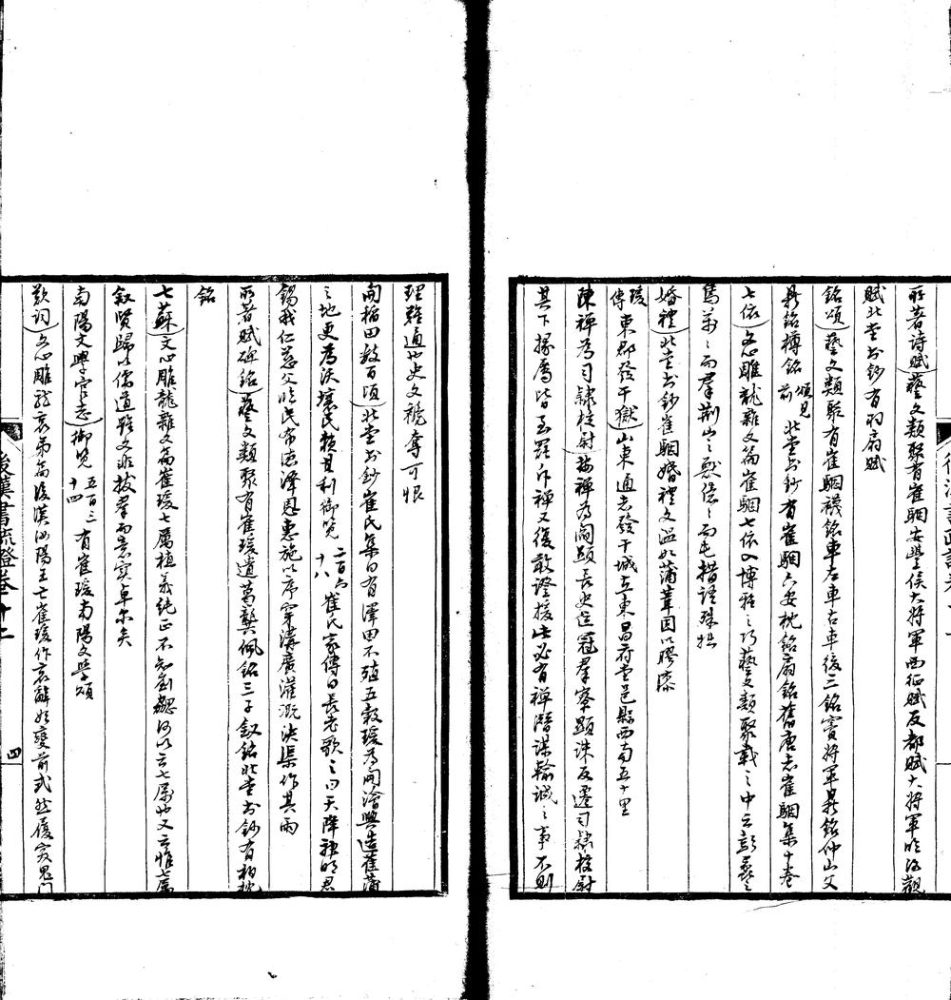 所著詩賦 藝文類聚有崔駰安豐侯大將軍西征賦反都賦大將軍臨洛觀
賦北堂書鈔有羽扇賦
銘頌 藝文類聚有崔駰襪銘車左車右車後三銘竇將軍鼎銘仲山父
鼎銘樽銘頌見前北堂書鈔有崔駰六安枕銘扇銘舊唐志崔駰集十卷
七依 文心雕龍雜文篇崔駰七依入博雅之巧藝文類聚載之中云
萬 之而羣荆山之獸
婚禮 北堂書鈔崔駰婚禮文溫如蒲葦固以膠漆
瑗傳 東郡發干獄 山東通志發干城在東昌府堂邑縣西南五十里
陳禪為司隸校尉 按禪為閻顯長史 冠羣寮顯誅反遷司隸校尉
其下掾屬皆 禪又復敢證援此必有禪潛謀輸誠之事不則
理難通也史文 奪可恨
開稻田數百頃 北堂書鈔崔氏集曰有澤田不殖五穀瑗為開澮興造 蒲
之地更為沃壤民賴其利御覽二百六十八崔氏家傳曰長老歌之曰天降神明君
錫我仁慈父臨民布德澤恩惠施以序穿溝廣灌溉決渠作甘雨
所著賦碑銘 藝文類聚有崔瑗遺葛龔佩銘三子釵銘北堂書鈔有 枕
銘
七蘇 文心雕龍雜文篇崔瑗七厲植義純正不知劉勰何以云七厲也又云惟七厲
叙賢歸以儒道雖文非拔羣而意實卓爾矣
南陽文學官志 御覽五百三十四有崔瑗南陽文學頌
歎詞 文心雕龍哀弔篇後漢汝陽王亡崔瑗作哀辭始變前式然履突鬼門
後漢書疏證卷十二
四